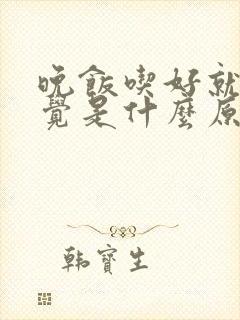 晚飯喫好就
覺是什麼原
韩寶生